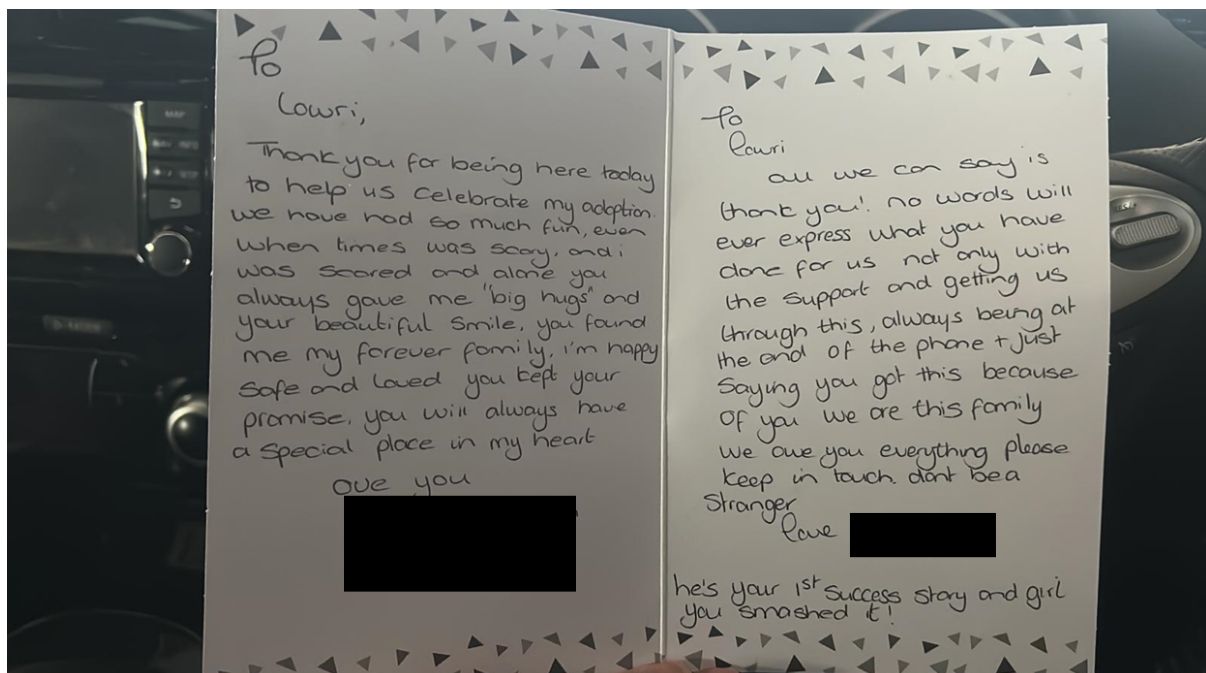 To
Lowri,
Thank you for being here today
to help us celebrate my adoption.
we have had so much fun, even
when times was scary, and i
was scared and alone you
always gave me "big hugs" and
your beautiful smile, you found
me my forever family, i'm happy
safe and loved you kept your
promise, you will always have
a special place in my heart
ove you
To
Lowri
all we can say is
thank you! no words will
ever express what you have
done for us not only with
the support and getting us
through this, always being at
the end of the phone + just
saying you got this because
of you we are this family
we owe you everything please
keep in touch. dont be a
stranger
Love
he's your 1st success story and girl
you smashed it!
MAP